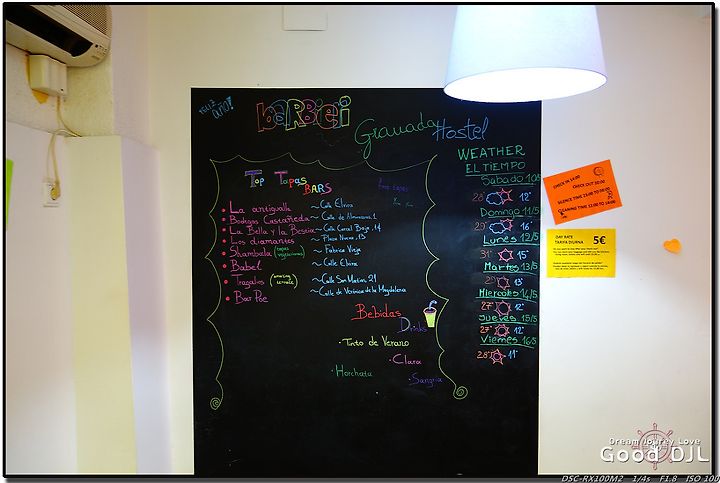 FELIZ AÑO!
barbieri
Granada Hostel
Top Tapas BARS
La antigualla ~ Calle Elvira
Bodegas Castañeda ~ Calle de Almireceros, 1
La Bella y La Bestia ~ Calle Carcel Baja, 14
Los diamantes ~ Plaza Nueva, 13
Shambala (tapas vegetarianas) ~ Fabrica Vieja
Babel ~ Calle Elvira
Tragalos (amazing service) ~ Calle San Matias 21
Bar Poe ~ Calle de Verónica de la Magdalena
Bebidas
Drinks
· Tinto de Verano
· Clara
· Horchata
· Sangria
WEATHER
EL TIEMPO
Sábado 10/5
28° 12°
Domingo 11/5
29° 16°
Lunes 12/5
31° 15°
Martes 13/5
29° 13°
Miercoles 14/5
27° 12°
Jueves 15/5
27° 12°
Viernes 16/5
28° 11°
CHECK IN 14:00
CHECK OUT
SILENCE TIME
CLEANING TIME
DAY RATE
TARIFA DIURNA
5€
Dream Jouney Love
Good DJL
DSC-RX100M2 1/4s F1.8 ISO 100